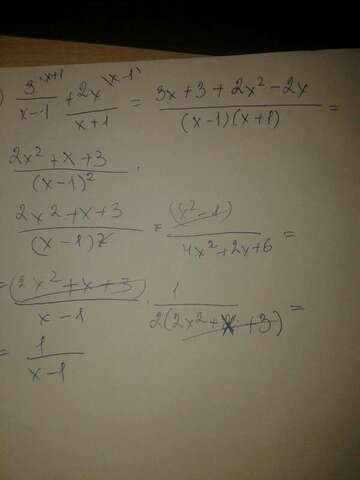 ) 3^{\x+1}/(x-1) + 2x^{\x-1)}/(x+1) = (3x+3+2x²-2x)/((x-1)(x+1)) =
(2x²+x+3)/((x-1)²) .
(2x²+x+3)/((x-1)2) * (x²-1)/(4x²+2x+6) =
= (2x²+x+3)/(x-1) · 1/(2(2x²+x+3)) =
= 1/(x-1)